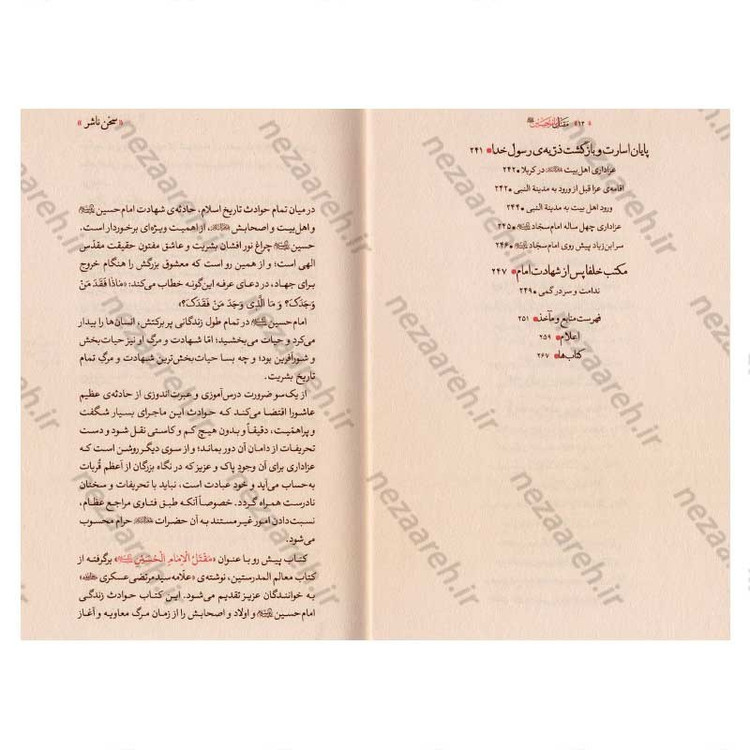 « ۱۲ » مقتل امام حسین
پایان اسارت و بازگشت ذرّیه‌ی رسول خدا ۲۴۱
عزاداری اهل بیت در کربلا ۲۴۲
اقامه‌ی عزا قبل از ورود به مدینة النبی ۲۴۲
ورود اهل بیت به مدینة النبی ۲۴۴
عزاداری چهل ساله امام سجّاد ۲۴۵
سر ابن‌زیاد پیش روی امام سجّاد ۲۴۶
مکتب خلفا پس از شهادت امام ۲۴۷
ندامت و سردرگمی ۲۴۹
فهرست منابع و مآخذ ۲۵۱
اعلام ۲۵۹
کتاب‌ها ۲۶۷
« سخن ناشر »
در میان تمام حوادث تاریخ اسلام، حادثه‌ی شهادت امام حسین
و اهل بیت و اصحابش، از اهمیت ویژه‌ای برخوردار است.
حسین چراغ نور افشان بشریت و عاشق مفتون حقیقت مقدّس
الهی است؛ و از همین رو است که معشوق بزرگش را هنگام خروج
برای جهاد، در دعای عرفه این‌گونه خطاب می‌کند: «ماذا فَقَدَ مَنْ
وَجَدَکَ؟ وَ مَا الَّذِی وَجَدَ مَنْ فَقَدَکَ؟»
امام حسین در تمام طول زندگانی پر برکتش، انسان‌ها را بیدار
می‌کرد و حیات می‌بخشید؛ امّا شهادت و مرگ او نیز حیات‌بخش
و شورآفرین بود؛ و چه بسا حیات‌بخش‌ترین شهادت و مرگِ تمام
تاریخ بشریت.
از یک سو ضرورت درس‌آموزی و عبرت‌اندوزی از حادثه‌ی عظیم
عاشورا اقتضا می‌کند که حوادث این ماجرای بسیار شگفت
و پراهمّیت، دقیقاً و بدون هیچ کم و کاستی نقل شود و دست
تحریفات از دامان آن دور بماند؛ و از سوی دیگر روشن است که
عزاداری برای آن وجودِ پاک و عزیز که در نگاه بزرگان از اعظم قُربات
به‌حساب می‌آید و خود عبادت است، نباید با تحریفات و سخنان
نادرست همراه گردد. خصوصاً آنکه طبق فتاوی مراجع عظام،
نسبت‌دادن امور غیر مستند به آن حضرات حرام محسوب
می‌شود.
کتاب پیش رو با عنوان «مَقْتَلُ الْإمامِ الْحُسَیْنِ» برگرفته از
کتاب معالم المدرستین، نوشته‌ی «علّامه سید مرتضی عسکری»
به خوانندگان عزیز تقدیم می‌شود. این کتاب حوادث زندگی
امام حسین و اولاد و اصحابش را از زمان مرگ معاویه و آغاز
nezaareh.ir
nezaareh.ir
nezaareh.ir
nezaareh.ir
nezaareh.ir
nezaareh.ir
nezaareh.ir